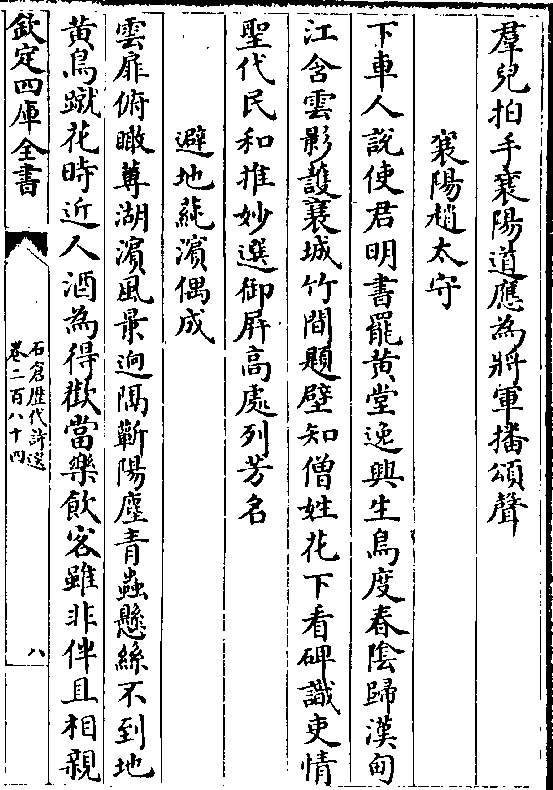 羣兒拍手襄陽道應為將軍播頌聲
襄陽趙太守
下車人說使君明書罷黄堂逸興生鳥度春隂歸漢甸
江含雲影護襄城竹間題壁知僧姓花下看碑識吏情
聖代民和推妙選御屛高處列芳名
避地蓴濵偶成
雲扉俯瞰蓴湖濵風景逈隔蘄陽塵青蟲懸絲不到地
黄鳥蹴花時近人酒為得歡當樂飲客雖非伴且相親
欽定四庫全書
石倉歴代詩選
卷二百八十四
八